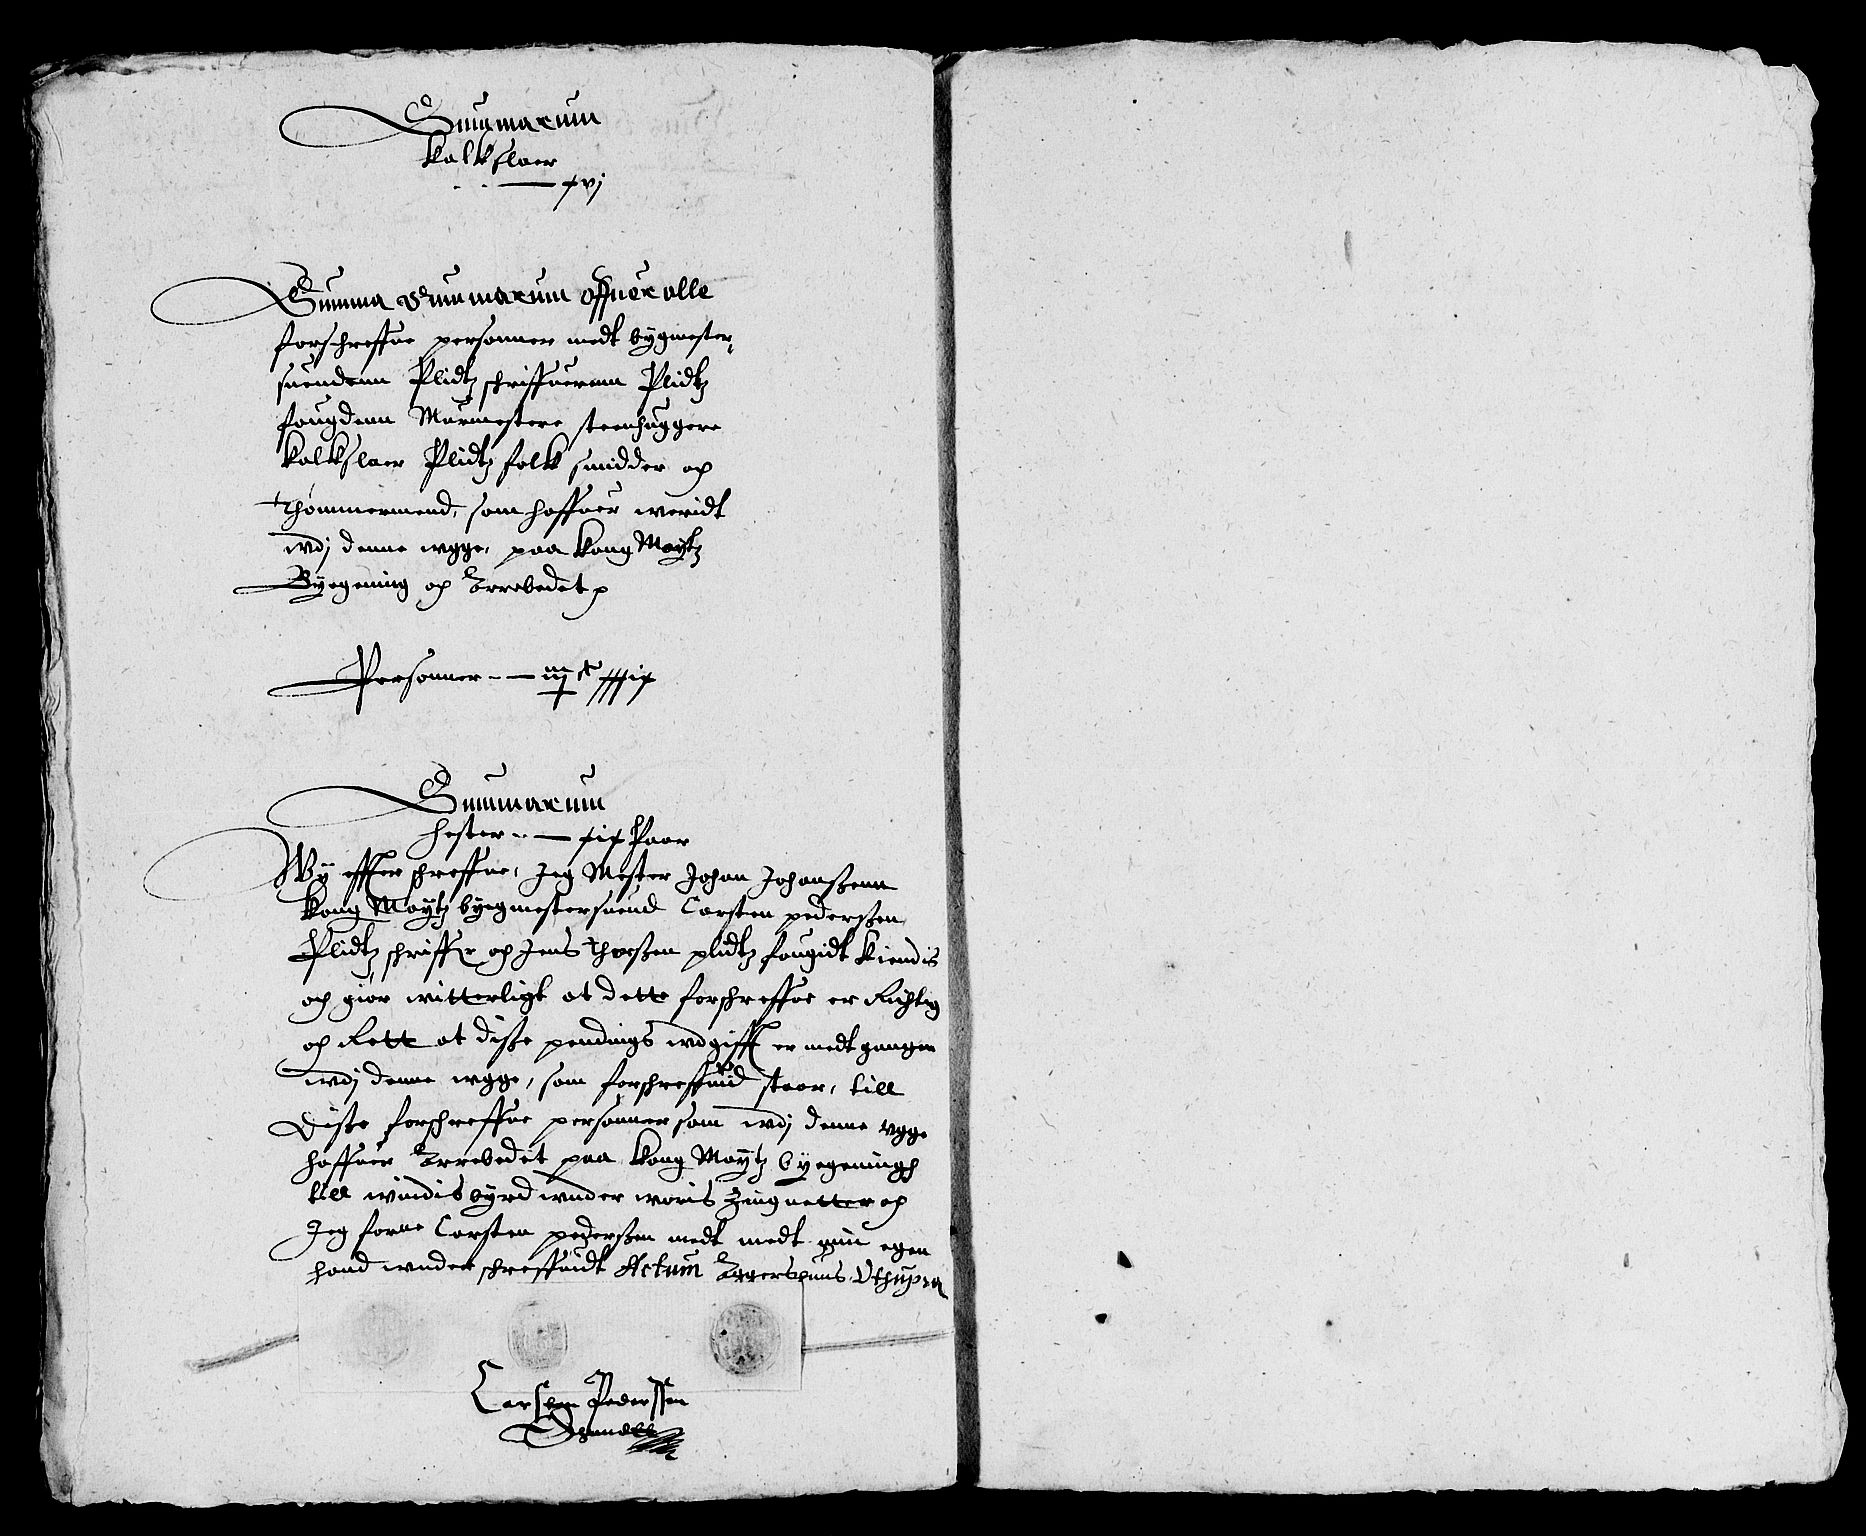 Summarum
kalkslaer
— xvj
Summa Summarum offuer alle
forschreffne personner medt bygmester
suendenn Plidtz schriffuerenn Plidtz
fougdenn Murmestere steenhuggere
kalkslaer Plidtz folk smidder och
Thømmermend, som haffuer weridt
wdj denne wgge, paa kong Maytz
Byegening och Arrebedet
Personner — iijc xxxix
Summarum
hester — xix Paar
Wy effter schreffne, Jeg Mester Johan Johanßenn
kong Maytz byegmestersuend Carsten pederßen
Plidtz schriffer och Jens Thorßen plidtz fougidt kiendis
och giør witterligt at dette forschreffne er Richtig
och Rett at diße pendings wdgifft er medt gangen
wdj denne wgge, som forschreffuid staar, till
Diße forschreffne personner som wdj denne vgge
haffuer Arrebedit paa kong Maytz byegeningh
till windis byrd wnder woris Zingnetter och
Jeg forne Carsten pederßen medt medt min egen
hand wnder schreffuidt Actum Aggershuus Vthupra
Carsten Pederssen